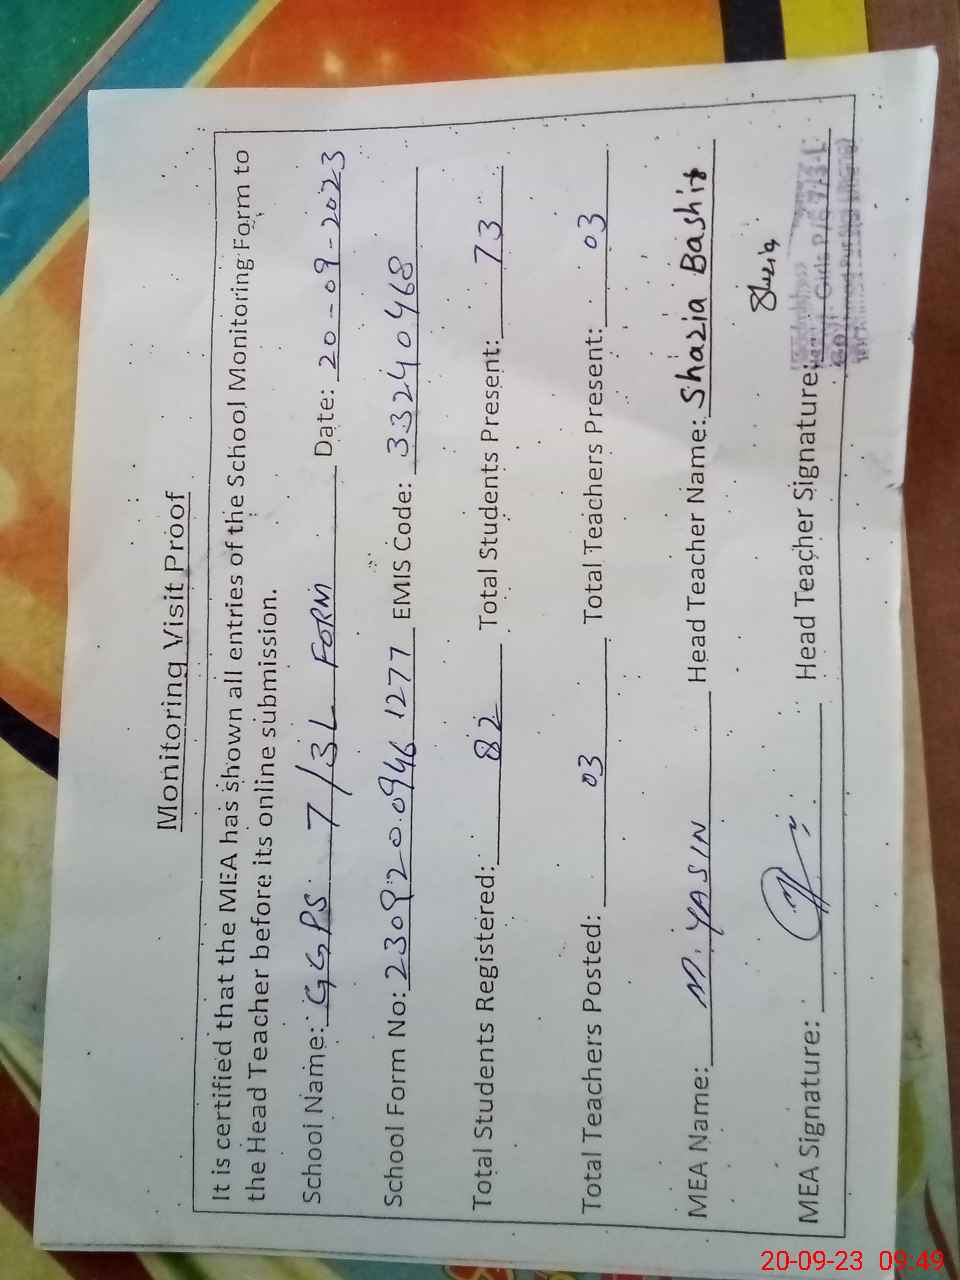 Monitoring Visit Proof
It is certified that the MEA has shown all entries of the School Monitoring Form to
the Head Teacher before its online submission.
School Name: GGPS 7/3L FORM Date: 20-09-2023
School Form No: 230920.0946 1277 EMIS Code: 33240468
Total Students Registered: 82 Total Students Present: 73
Total Teachers Posted: 03 Total Teachers Present: 03
MEA Name: M. YASIN Head Teacher Name: Shazia Bashir
Shazia
MEA Signature: Head Teacher Signature:
20-09-23 09:49